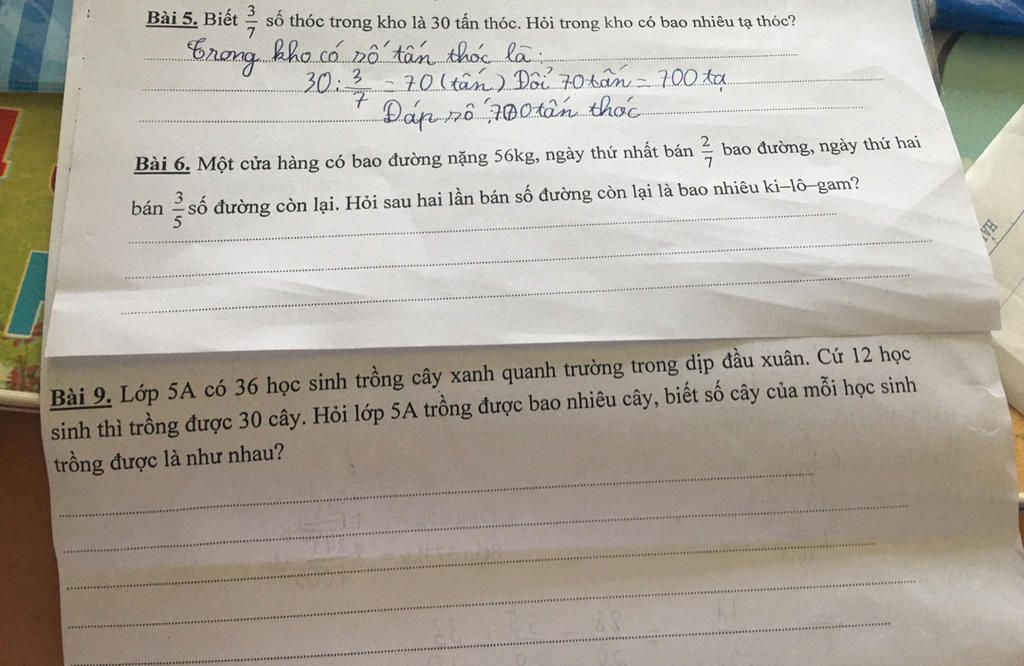 Bài 5. Biết 3/7 số thóc trong kho là 30 tấn thóc. Hỏi trong kho có bao nhiêu tạ thóc?
Trong kho có số tấn thóc là:
30 : 3/7 = 70 (tấn) Đổi 70 tấn = 700 tạ
Đáp số: 700 tấn thóc
Bài 6. Một cửa hàng có bao đường nặng 56kg, ngày thứ nhất bán 2/7 bao đường, ngày thứ hai
bán 3/5 số đường còn lại. Hỏi sau hai lần bán số đường còn lại là bao nhiêu ki–lô–gam?
Bài 9. Lớp 5A có 36 học sinh trồng cây xanh quanh trường trong dịp đầu xuân. Cứ 12 học
sinh thì trồng được 30 cây. Hỏi lớp 5A trồng được bao nhiêu cây, biết số cây của mỗi học sinh
trồng được là như nhau?